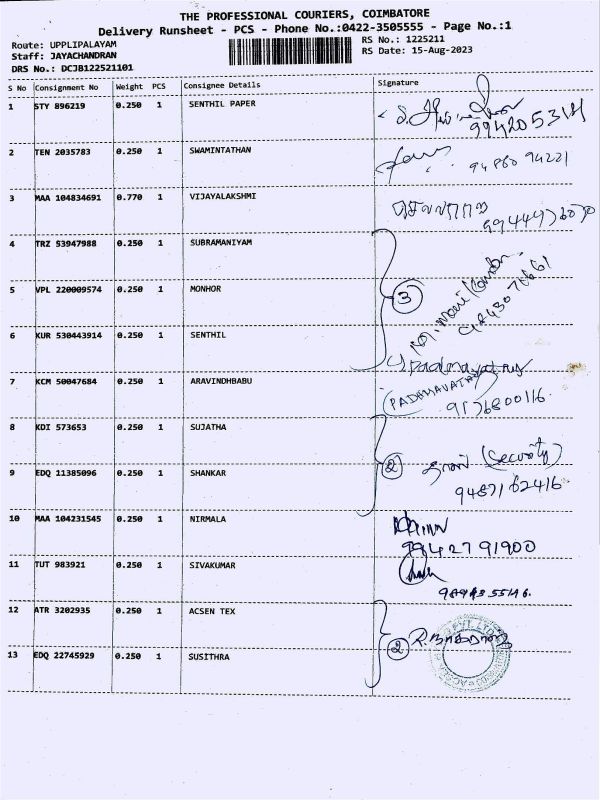 THE PROFESSIONAL COURIERS, COIMBATORE
Delivery Runsheet - PCS - Phone No.:0422-3505555 - Page No.:1
Route: UPPLIPALAYAM
Staff: JAYACHANDRAN
DRS No.: DCJB122521101
RS No.: 1225211
RS Date: 15-Aug-2023
S No Consignment No Weight PCS Consignee Details Signature
1 STY 896219 0.250 1 SENTHIL PAPER
2 TEN 2035783 0.250 1 SWAMINTATHAN
3 MAA 104834691 0.770 1 VIJAYALAKSHMI
4 TRZ 53947988 0.250 1 SUBRAMANIYAM
5 VPL 220009574 0.250 1 MONHOR
3
6 KUR 530443914 0.250 1 SENTHIL
7 KCM 50047684 0.250 1 ARAVINDHBABU
(PADMAVATHY)
9176800116
8 KDI 573653 0.250 1 SUJATHA
2 (Security)
9 EDQ 11385096 0.250 1 SHANKAR
9487162416
10 MAA 104231545 0.250 1 NIRMALA
9942791900
11 TUT 983921 0.250 1 SIVAKUMAR
12 ATR 3202935 0.250 1 ACSEN TEX
2
13 EDQ 22745929 0.250 1 SUSITHRA